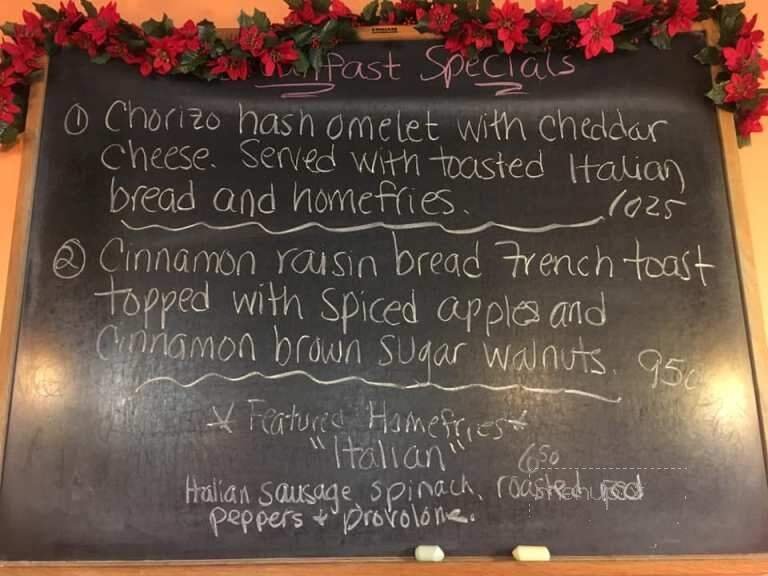 Breakfast Specials
① Chorizo hash omelet with cheddar
cheese. Served with toasted Italian
bread and homefries. 1025
② Cinnamon raisin bread French toast
topped with Spiced apples and
Cinnamon brown sugar walnuts. 950
* Featured Homefries *
"Italian" 650
Italian sausage, spinach, roasted red
peppers + provolone.